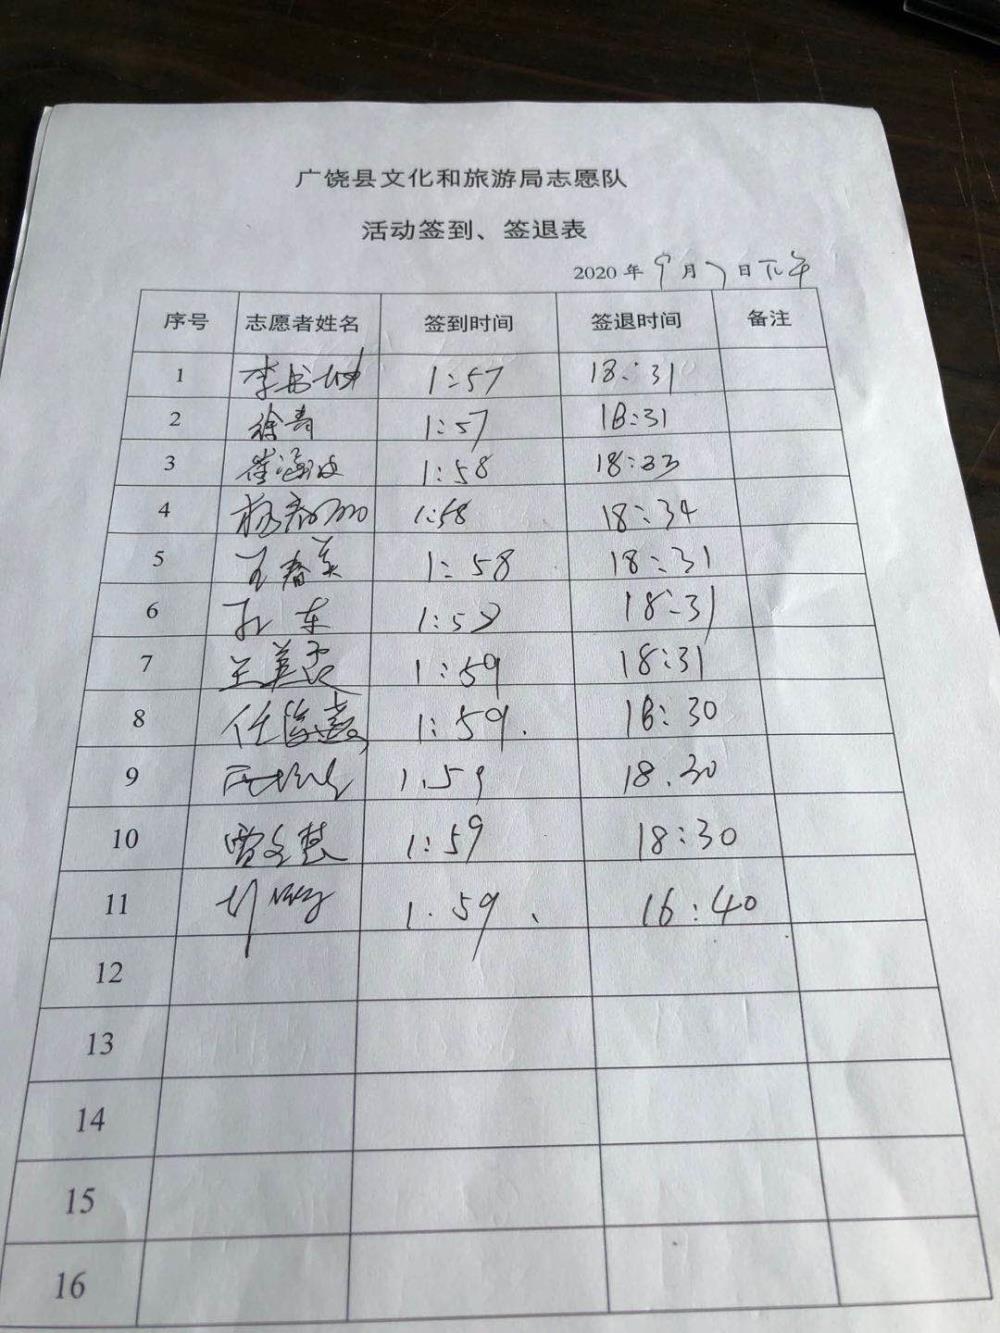 广饶县文化和旅游局志愿队
活动签到、签退表
2020年9月7日下午
序号 志愿者姓名 签到时间 签退时间 备注
1 李书坤 1:57 18:31
2 徐青 1:57 18:31
3 崔海波 1:58 18:33
4 杨 1:58 18:34
5 王春美 1:58 18:31
6 孙东 1:59 18:31
7 王美霞 1:59 18:31
8 任 1:59. 18:30
9 1.59 18.30
10 贾文慧 1:59 18:30
11 1.59、 16:40
12
13
14
15
16